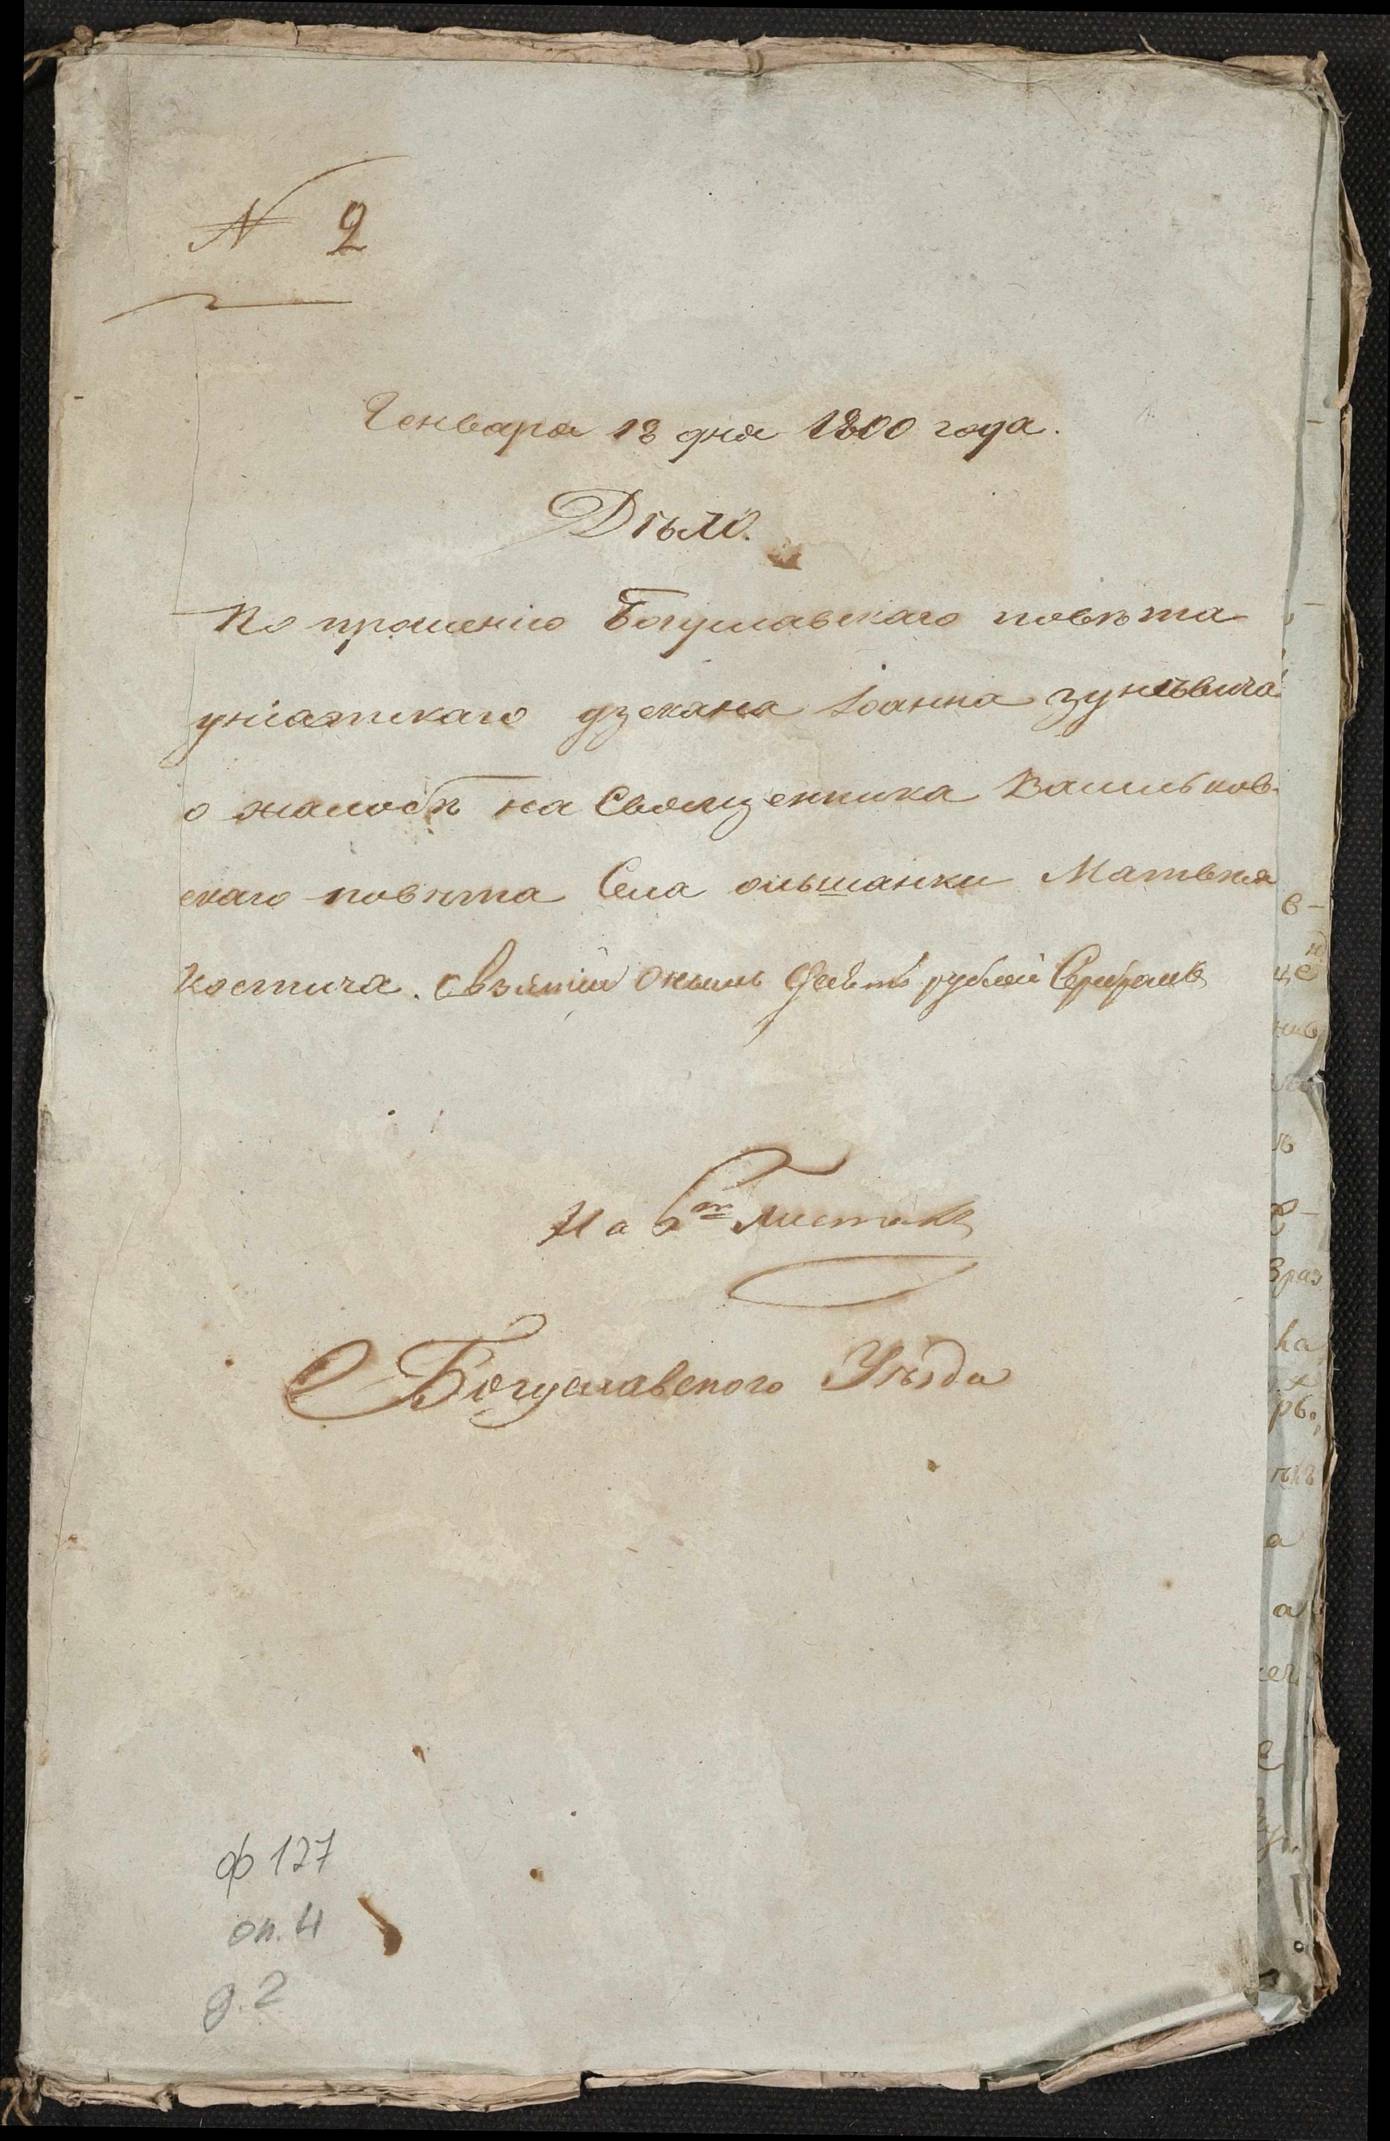 N 2
Генваря 18 дня 1800 года.
Дѣло.
По прошенію Богуславскаго повѣта
уніатскаго дзекана Іоанна Зунѣвича
о жалобѣ на Священника Васильков-
скаго повѣта Села ольшанки Матвѣя
Костича. О взятіи онымъ рублей
На 6ти листахъ
Богуславского Уѣзда
ф 127
оп. 4
д. 2